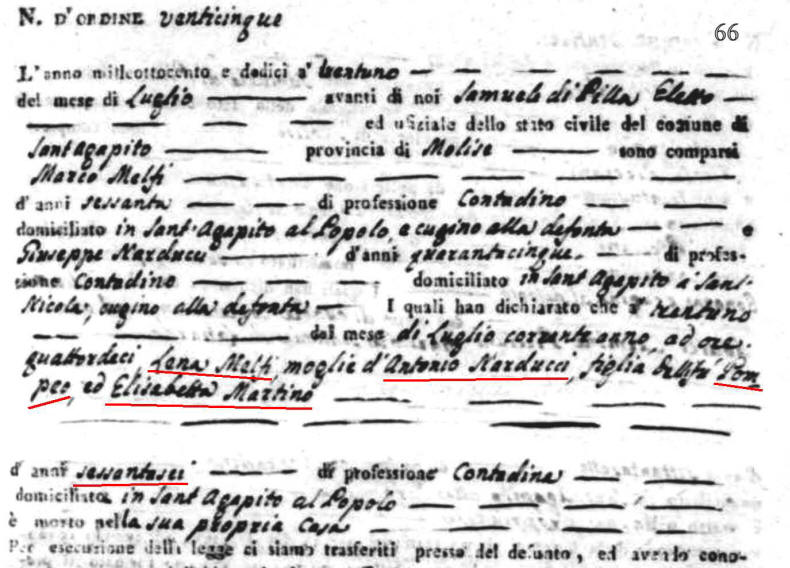 N. D'ORDINE venticinque
66
L'anno milleottocento e dodici a' trentuno
del mese di Luglio avanti di noi Samuele di Pilla Eletto
ed ufiziale dello stato civile del comune di
Sant Agapito provincia di Molise sono comparsi
Marco Melfi
d' anni sessanta di professione Contadino
domiciliato in Sant' Agapito al Popolo, e cugino alla defonta e
Giuseppe Narducci d'anni quarantacinque. di profes-
sione Contadino domiciliato in Sant Agapito a San-
Nicola, cugino alla defonta I quali han dichiarato che a' trentuno
del mese di Luglio corrente anno, ad ore
quattordeci Lena Melfi, moglie d'Antonio Narducci, figlia dell fu Pom
peo, ed Elisabetta Martino
d' anni sessantasei di professione Contadina
domiciliata in Sant Agapito al Popolo
è morto nella sua propria Casa
Per esecuzione della legge ci siamo trasferiti presso del defunto, ed averlo cono-